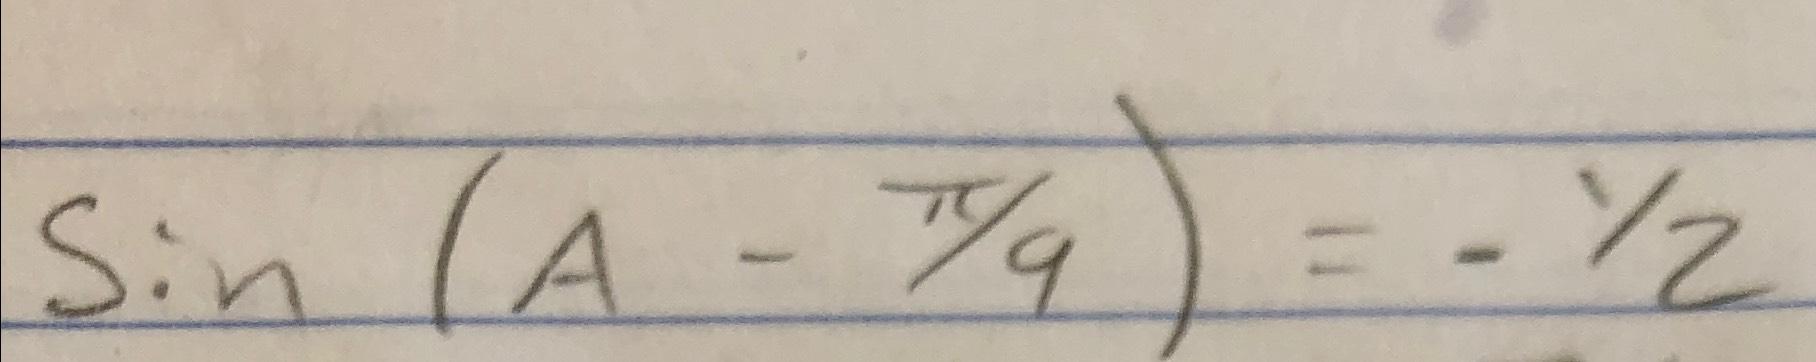 Sin (A - π/9) = - 1/2